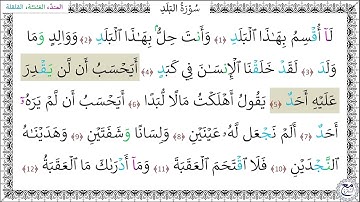 المدّ، الغنّة، القلقلة
سُورَةُ البَلَدِ
لَآ أُقۡسِمُ بِهَٰذَا ٱلۡبَلَدِ (1) وَأَنتَ حِلُّۢ بِهَٰذَا ٱلۡبَلَدِ (2) وَوَالِدٖ وَمَا
وَلَدَ (3) لَقَدۡ خَلَقۡنَا ٱلۡإِنسَٰنَ فِي كَبَدٍ (4) أَيَحۡسَبُ أَن لَّن يَقۡدِرَ
عَلَيۡهِ أَحَدٞ (5) يَقُولُ أَهۡلَكۡتُ مَالٗا لُّبَدًا (6) أَيَحۡسَبُ أَن لَّمۡ يَرَهُۥٓ
أَحَدٌ (7) أَلَمۡ نَجۡعَل لَّهُۥ عَيۡنَيۡنِ (8) وَلِسَانٗا وَشَفَتَيۡنِ (9) وَهَدَيۡنَٰهُ
ٱلنَّجۡدَيۡنِ (10) فَلَا ٱقۡتَحَمَ ٱلۡعَقَبَةَ (11) وَمَآ أَدۡرَىٰكَ مَا ٱلۡعَقَبَةُ (12)